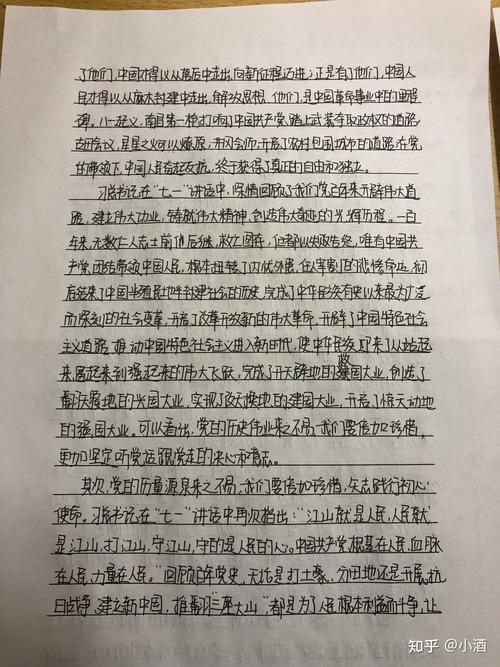 了他们,中国才得以从落后中走出,向新征程迈进;正是有了他们,中国人
民才得以从麻木封建中走出,解放思想。他们,是中国革命事业中的里程
碑。八一起义,南昌第一枪打响了中国共产党踏上武装夺取政权的道路,
古田会议,星星之火可以燎原,井冈会师,开启了农村包围城市的道路,在党
的带领下,中国人民奋起反抗,终于获得了真正的自由和独立。
习总书记在“七一”讲话中,深情回顾了我们党百年来开辟伟大道
路,建立伟大功业,铸就伟大精神,创造伟大奇迹的光辉历程。一百
年来,无数仁人志士前仆后继,救亡图存,但都以失败告终,唯有中国共
产党,团结带领中国人民,根本扭转了内忧外患,任人宰割的悲惨命运,彻
底结束了中国半殖民地半封建社会的历史,完成了中华民族有史以来最为广泛
而深刻的社会变革,开启了改革开放新的伟大革命,开辟了中国特色社会
主义道路,推动中国特色社会主义进入新时代,使中华民族迎来了从站起
来,富起来到强起来的伟大飞跃,完成了开天辟地的救国大业,创造了
翻天覆地的兴国大业,实现了改天换地的建国大业,开启了惊天动地
的强国大业。可以看出,党的历史伟业来之不易,我们要倍加珍惜,
更加坚定听党话跟党走的决心和意志。
其次,党的力量源泉来之不易,我们要倍加珍惜,矢志践行初心
使命。习总书记在“七一”讲话中再次指出:“江山就是人民,人民就
是江山,打江山,守江山,守的是人民的心。中国共产党根基在人民,血脉
在人民,力量在人民。”回顾百年党史,无论是打土豪、分田地还是开展抗
日战争,建立新中国,推翻“三座大山”都是为了人民根本利益而斗争,让
知乎 @小酒